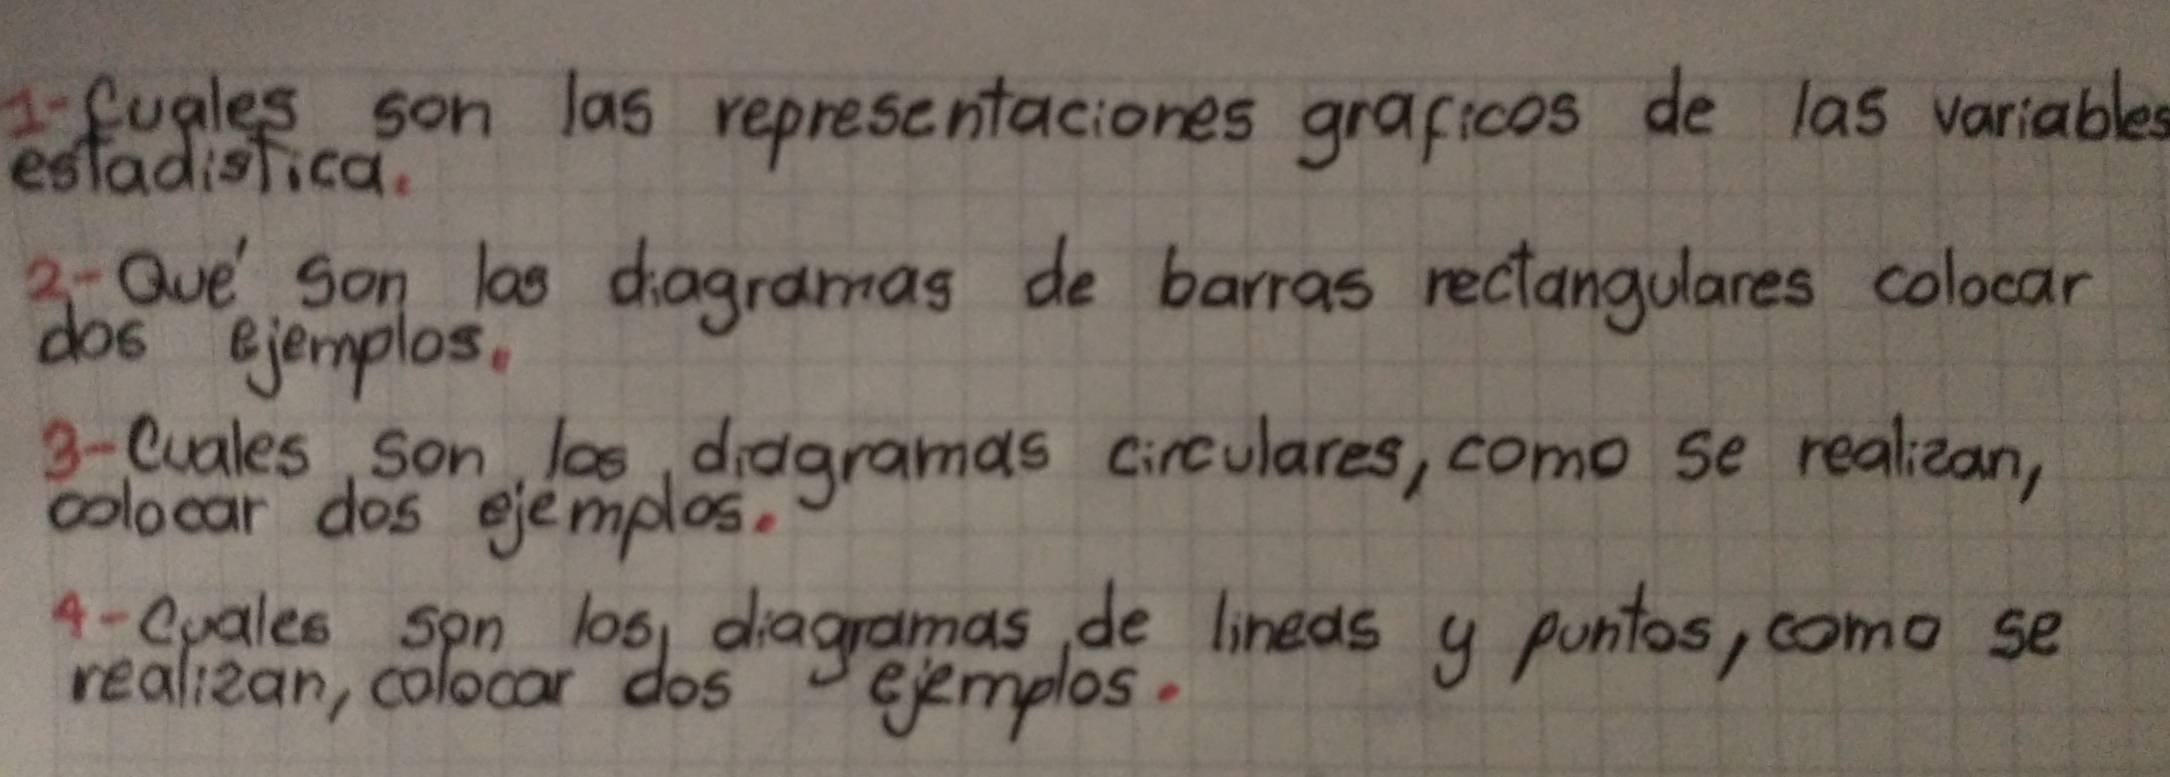 1- Cuales son las representaciones graficos de las variables
estadistica.
2- Qué son los diagramas de barras rectangulares colocar
dos ejemplos.
3- Cuales son los diagramas circulares, como se realizan,
colocar dos ejemplos.
4- Cuales son los diagramas de lineas y puntos, como se
realizan, colocar dos ejemplos.